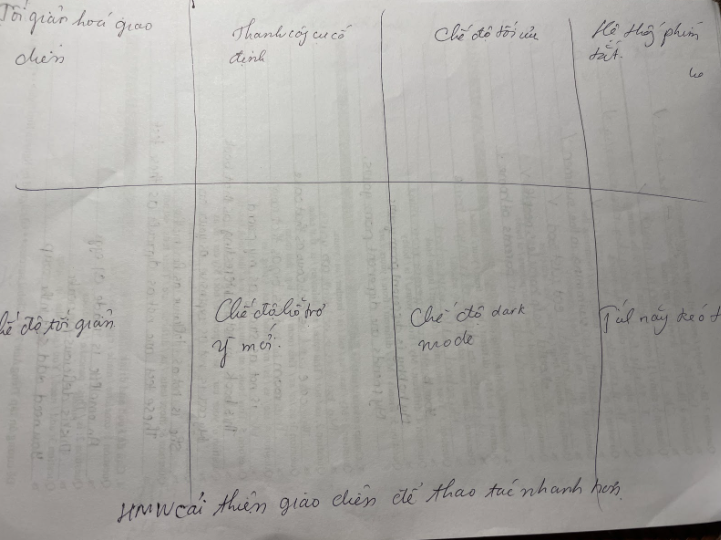 Tối giản hoá giao
diện
Thanh công cụ cố
định
Chế độ tối ưu
Hệ thống phím
tắt.
Chế độ tối giản
Chế độ hỗ trợ
ý mới.
Chế độ dark
mode
HMW cải thiện giao diện để thao tác nhanh hơn